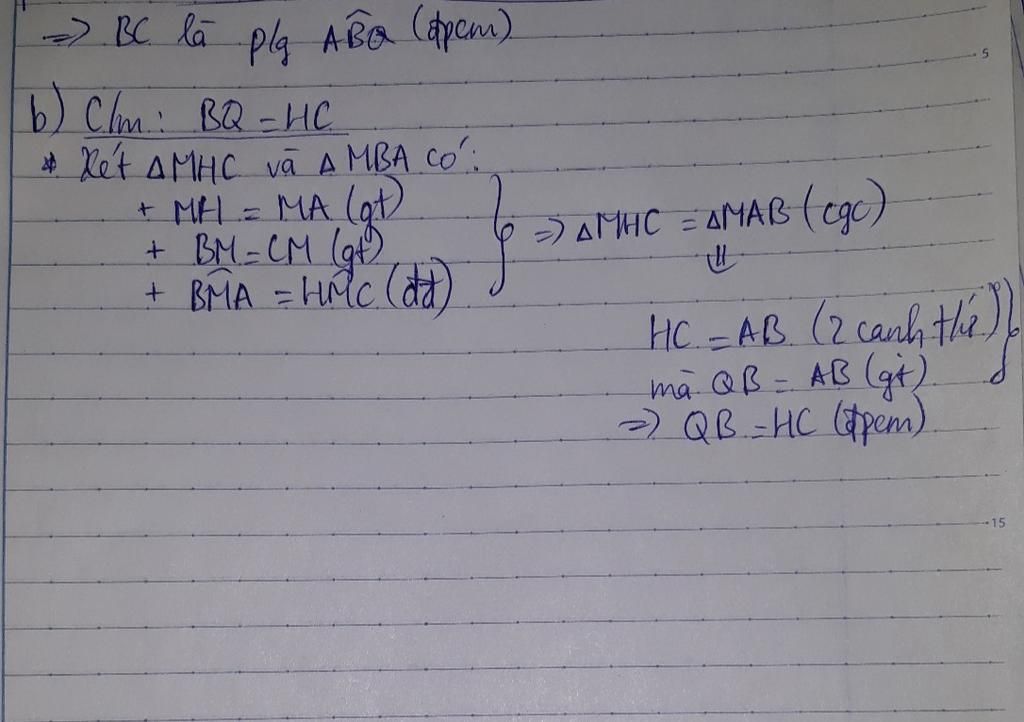 => BC là p/g AB̂Q (đpcm)
5
b) C/m: BQ = HC
* Xét ΔMHC và ΔMBA có:
+ MH = MA (gt)
+ BM = CM (gt)
+ BM̂A = HM̂C (đđ)
} => ΔMHC = ΔMAB (cgc)
⇓
HC = AB (2 cạnh t/ứ)
mà QB = AB (gt) }
=> QB = HC (đpcm)
15